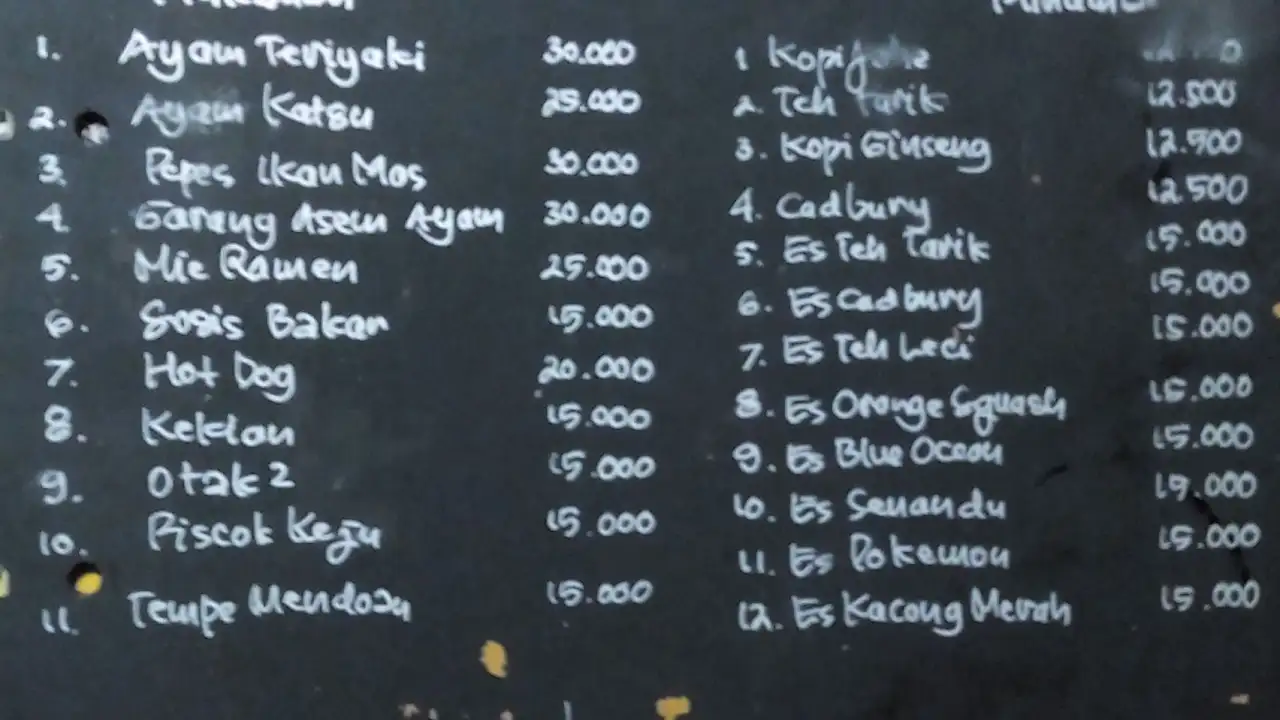 1. Ayam Teriyaki 30.000
2. Ayam Katsu 25.000
3. Pepes Ikan Mas 30.000
4. Garang Asem Ayam 30.000
5. Mie Ramen 25.000
6. Sosis Bakar 15.000
7. Hot Dog 20.000
8. Kekian 15.000
9. Otak2 15.000
10. Piscok Keju 15.000
11. Tempe Mendoan 15.000
1 Kopi
2. Teh Tarik 12.500
3. Kopi Ginseng 12.500
4. Cadbury 12.500
5. Es Teh Tarik 15.000
6. Es Cadbury 15.000
7. Es Teh Leci 15.000
8. Es Orange Squash 15.000
9. Es Blue Ocean 15.000
10. Es Senandu
11. Es Pokemon 15.000
12. Es Kacang Merah 15.000